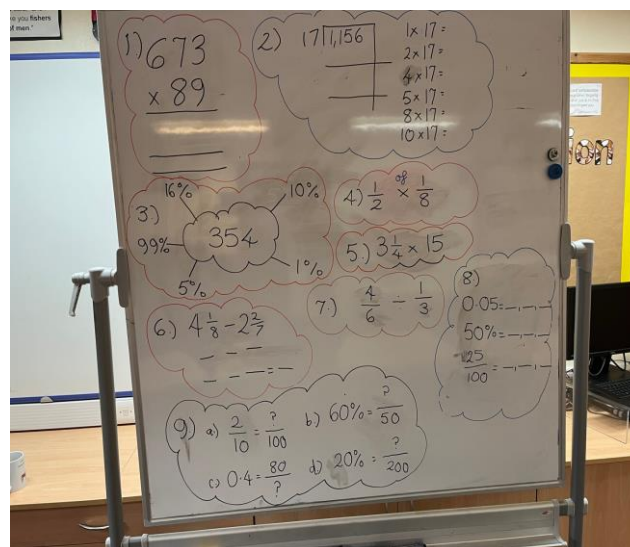 ke you fishers
of men."
1) 673
× 89
2) 17 1,156
1×17=
2×17=
4×17=
5×17=
8×17=
10×17=
3) 354
16%
10%
99%
5%
1%
4) 1/2 of × 1/8
5.) 3 1/4 × 15
6.) 4 1/8 - 2 2/7
=
7.) 4/6 ÷ 1/3
8)
0.05=_,_,_
50%=_,_,_
25/100=_,_,_
9) a) 2/10 = ?/100
b.) 60% = ?/50
c) 0.4 = 80/?
d) 20% = ?/200
ion